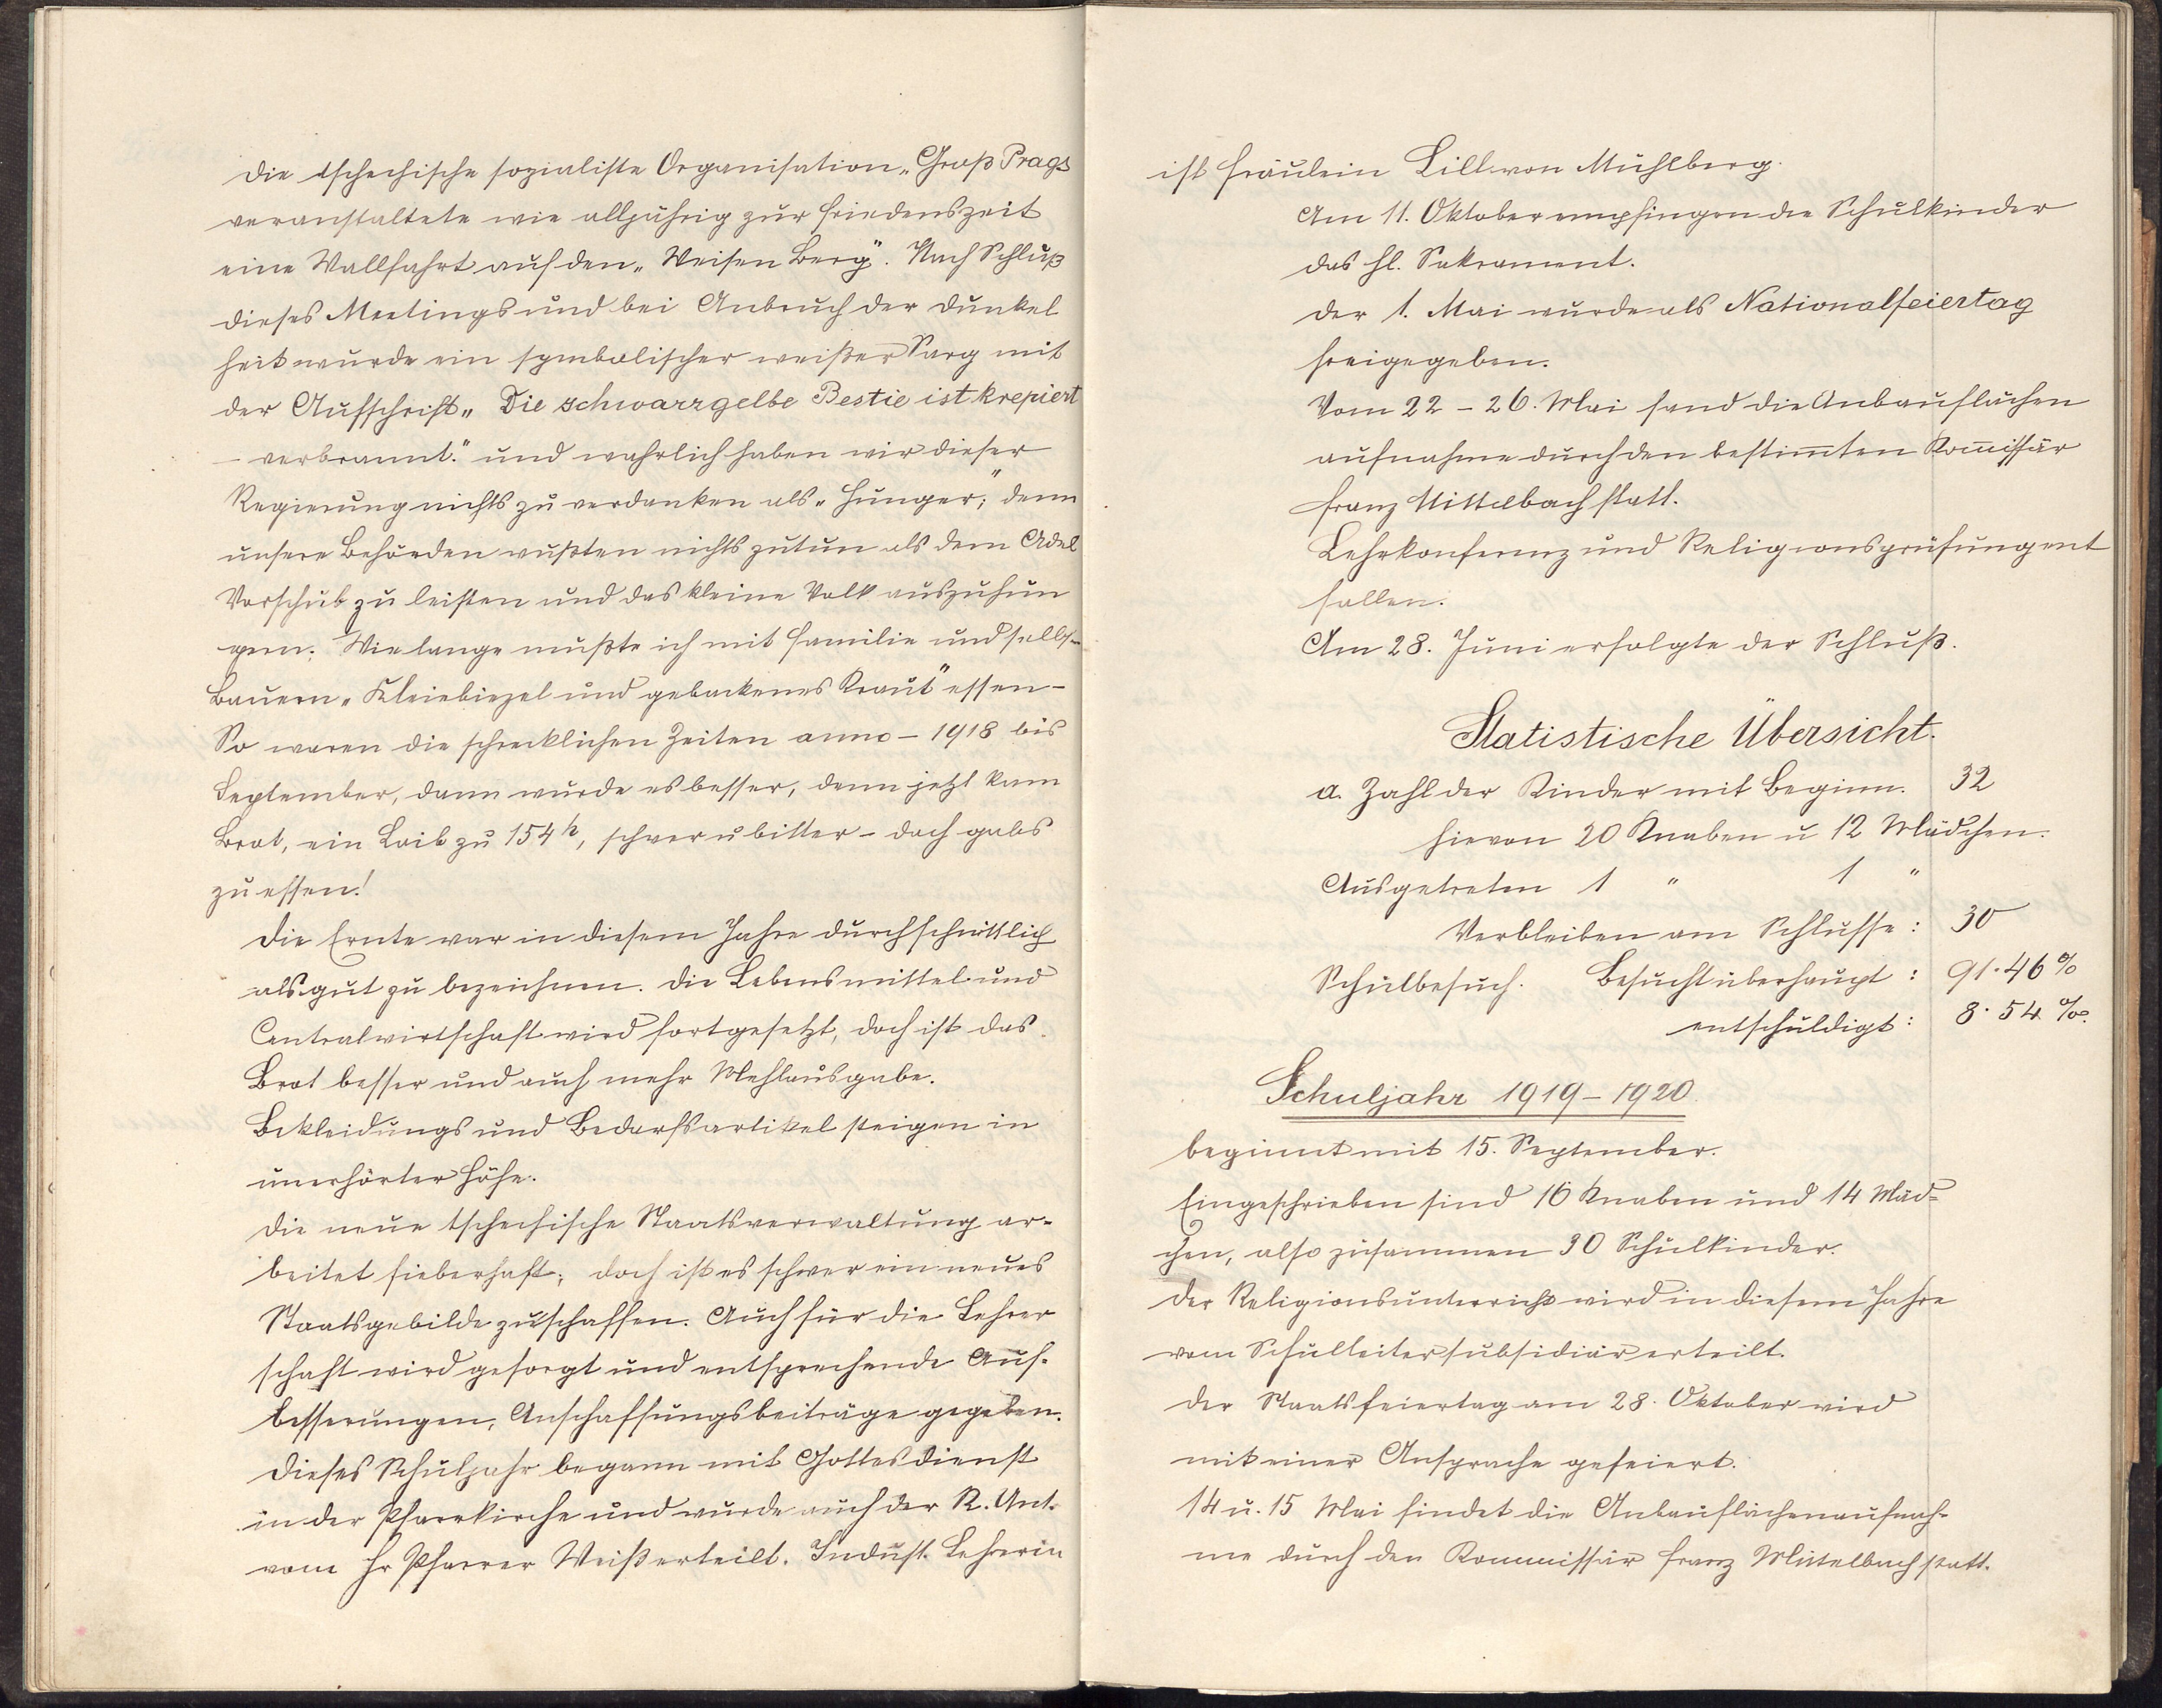 Die tschechische sozialiste Organisation „Groß Prags
veranstaltete wie alljährig zur Friedenszeit
eine Wallfahrt auf den „Weisen Berg". Nach Schluß
dieses Meetings und bei Anbruch der Dunkel
heit wurde ein symbolischer weißer Sarg mit
der Aufschrift „Die schwarzgelbe Bestie ist krepiert
– verbrannt." und wahrlich haben wir dieser
Regierung nichts zu verdanken als „Hunger;" denn
unsere Behörden wußten nichts zutun als dem Adel
Vorschub zu leisten und das kleine Volk auszuhun
gern. Wie lange mußte ich mit Familie und selbst
Bauern „Kleiebiezel und gebackenes Kraut" essen –
So waren die schrecklichen Zeiten anno – 1918 bis
September, dann wurde es besser, denn jetzt kam
Brot, ein Laib zu 154 h, schwer u bitter – doch gabs
zu essen!
Die Ernte war in diesem Jahre durchschnittlich
als gut zu bezeichnen. Die Lebensmittel und
Centralwirtschaft wird fortgesetzt, doch ist das
Brot besser und auch mehr Mehlausgabe.
Bekleidungs und Bedarfsartikel steigen in
unerhörter Höhe.
Die neue tschechische Staatsverwaltung ar-
beitet fieberhaft; doch ist es schwer ein neues
Staatsgebilde zu schaffen. Auch für die Lehrer
schaft wird gesorgt und entsprechende Auf-
besserungen, Anschaffungsbeiträge gegeben.
Dieses Schuljahr begann mit Gottesdienst
in der Pfarrkirche und wurde auch der R. Unt.
vom Hr Pfarrer Weiß erteilt. Indust. Lehrerin
ist Fräulein Lill von Mühlberg.
Am 11. Oktober empfingen die Schulkinder
das hl. Sakrament.
Der 1. Mai wurde als Nationalfeiertag
freigegeben.
Vom 22 – 26. Mai fand die Anbauflächen
aufnahme durch den bestim̄ten Kom̄issär
Franz Mittelbach statt.
Lehrkonferenz und Religionsprüfung ent
fallen.
Am 28. Juni erfolgte der Schluß.
Statistische Übersicht.
a. Zahl der Kinder mit Beginn. 32
hievon 20 Knaben u 12 Mädchen.
Ausgetreten 1 " 1 "
Verbleiben am Schlusse: 30
Schulbesuch. Besucht überhaupt: 91·46 %
entschuldigt: 8·54 %.
Schuljahr 1919 – 1920.
beginnt mit 15. September.
Eingeschrieben sind 16 Knaben und 14 Mäd-
chen, also zusammen 30 Schulkinder.
Der Religionsunterricht wird in diesem Jahre
vom Schulleiter subsidiär erteilt.
Der Staatsfeiertag am 28. Oktober wird
mit einer Ansprache gefeiert.
14 u. 15 Mai findet die Anbauflächenaufnah-
me durch den Kommissär Franz Mittelbach statt.